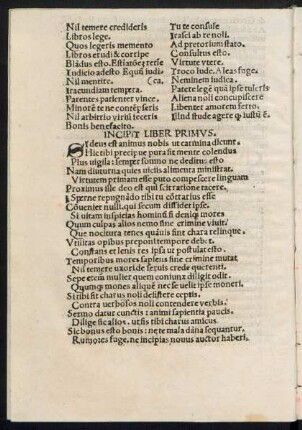 Nil temere credideris
Libros lege.
Quos legeris memento
Libros erudi & corripe
Bládus esto. Existiatóe retie
Iudicio adesto Equū iudi-
Nil mentire.
Iracundiam tempera.
Parentes patienter vince.
Minorē te ne contēpseris
Nil arbitrio viriū feceris
Bonis benefacito.
Tu te consule
Irasci ab re noli.
Ad pretorium stato.
Consultus esto.
Virtute vtere.
Troco lude. Aleas fuge.
Neminem iudica.
Patere legē quā ipse tuleris
Aliena noli concupiscere
Libenter amorem ferto.
Illud stude agere q iustū ē.
INCIPIT LIBER PRIMVS.
SI deus est animus nobis vt carmina dicunt.
Hic tibi precipue pura sit mente colendus
Plus vigila: semper somno ne deditus esto
Nam diuturna quies viciis alimenta ministrat.
Virtutem primam esse puto compescere linguam
Proximus ille deo est qui scit ratione tacere.
Sperne repugnādo tibi tu cōtrarius esse
Cōueniet nulli, qui secum dissidet ipse.
Si uitam inspicias hominū si deniq; mores
Quum culpas alios nemo sine crimine viuit.
Que nocitura tenes quāuis sint chara relinque.
Vtilitas opibus preponi tempore debet.
Constans et lenis res ipsa ut postulat esto.
Temporibus mores sapiens sine crimine mutat
Nil temere uxori de seruis crede querenti.
Sepe etem mulier quem coniunx diligit odit.
Quumq; mones aliquē nec se uelit ipse moneri.
Si tibi sit charus noli desistere ceptis.
Contra uerbosos noli contendere verbis.
Sermo datur cunctis: animi sapientia paucis.
Dilige sic alios, ut sis tibi charus amicus.
Sic bonus esto bonis: ne te mala dāna sequantur.
Rumores fuge, ne incipias nouus auctor haberi.